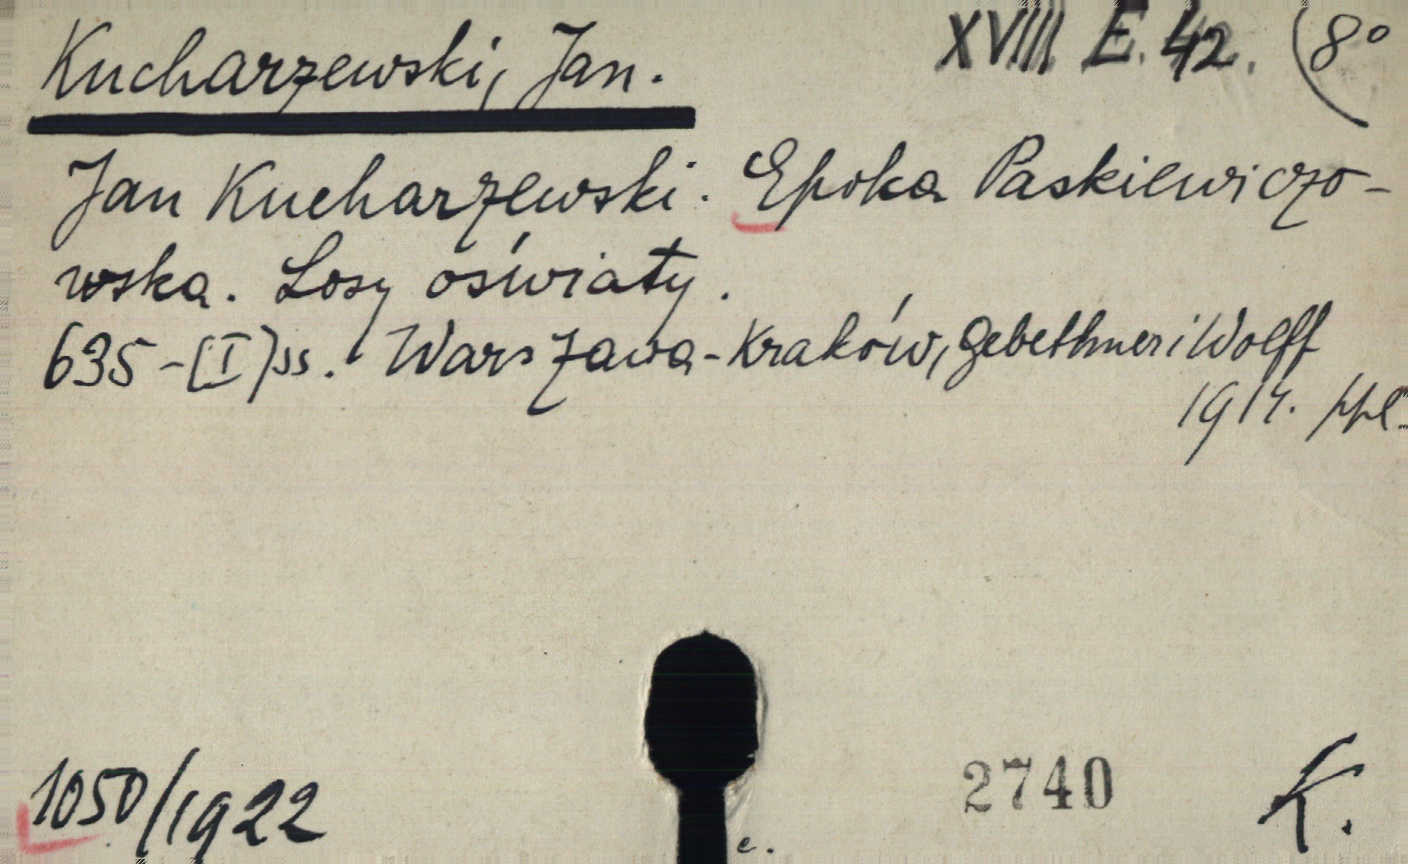 Kucharzewski, Jan.
XVIII E. 42. (8°
Jan Kucharzewski. Epoka Paskiewiczo-
wska. Losy oświaty.
635-[I] ss. Warszawa-Kraków, Gebethner i Wolff
1914. ppl.
1050/1922
2740
K.
c.